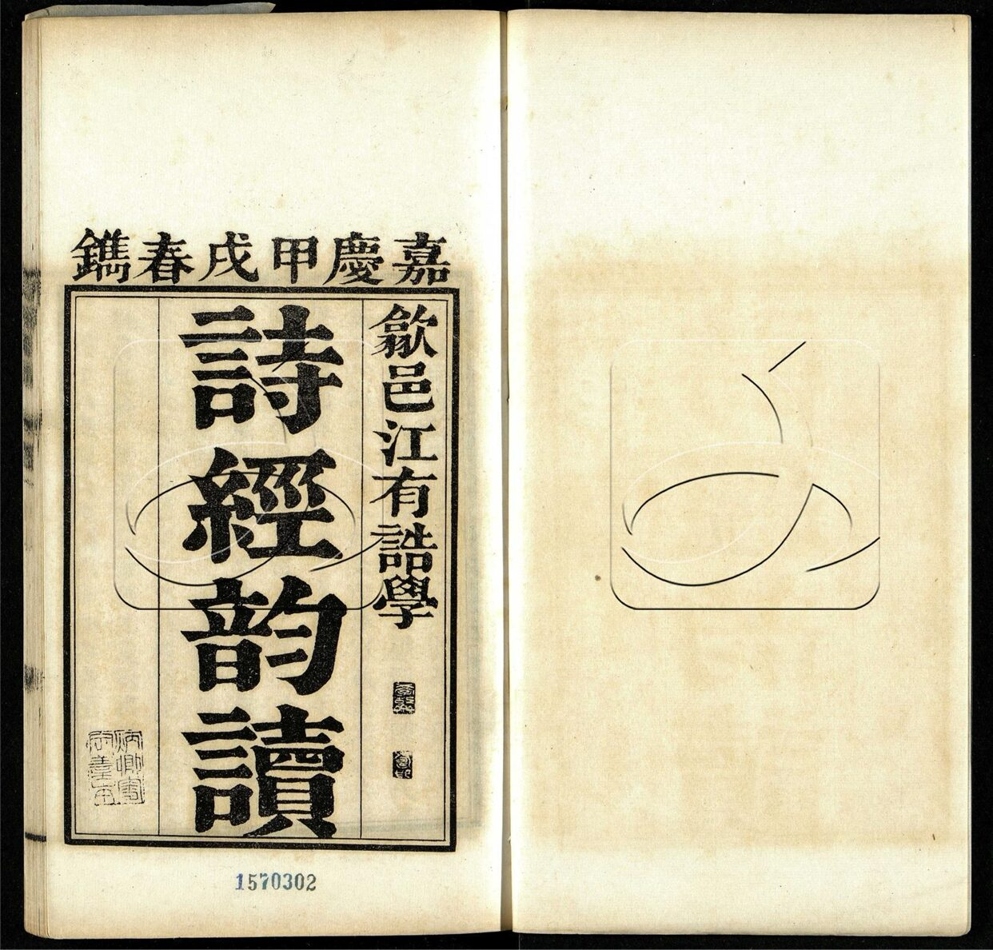 嘉慶甲戌春鐫
歙邑江有誥學
詩經韵讀
1570302